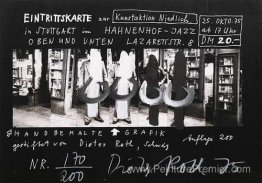 EINTRITTSKARTE zur Kunstaktion Niedlich
in STUTTGART im HAHNENHOF-JAZZ
OBEN UND UNTEN LAZARETTSTR. 8
25. OKTO. 75
ab 17 Uhr
DM 20.-
HANDBEMALTE GRAFIK
gestiftet von Dieter Roth,
Auflage 200
NR. 170/200 Dieter Roth 75